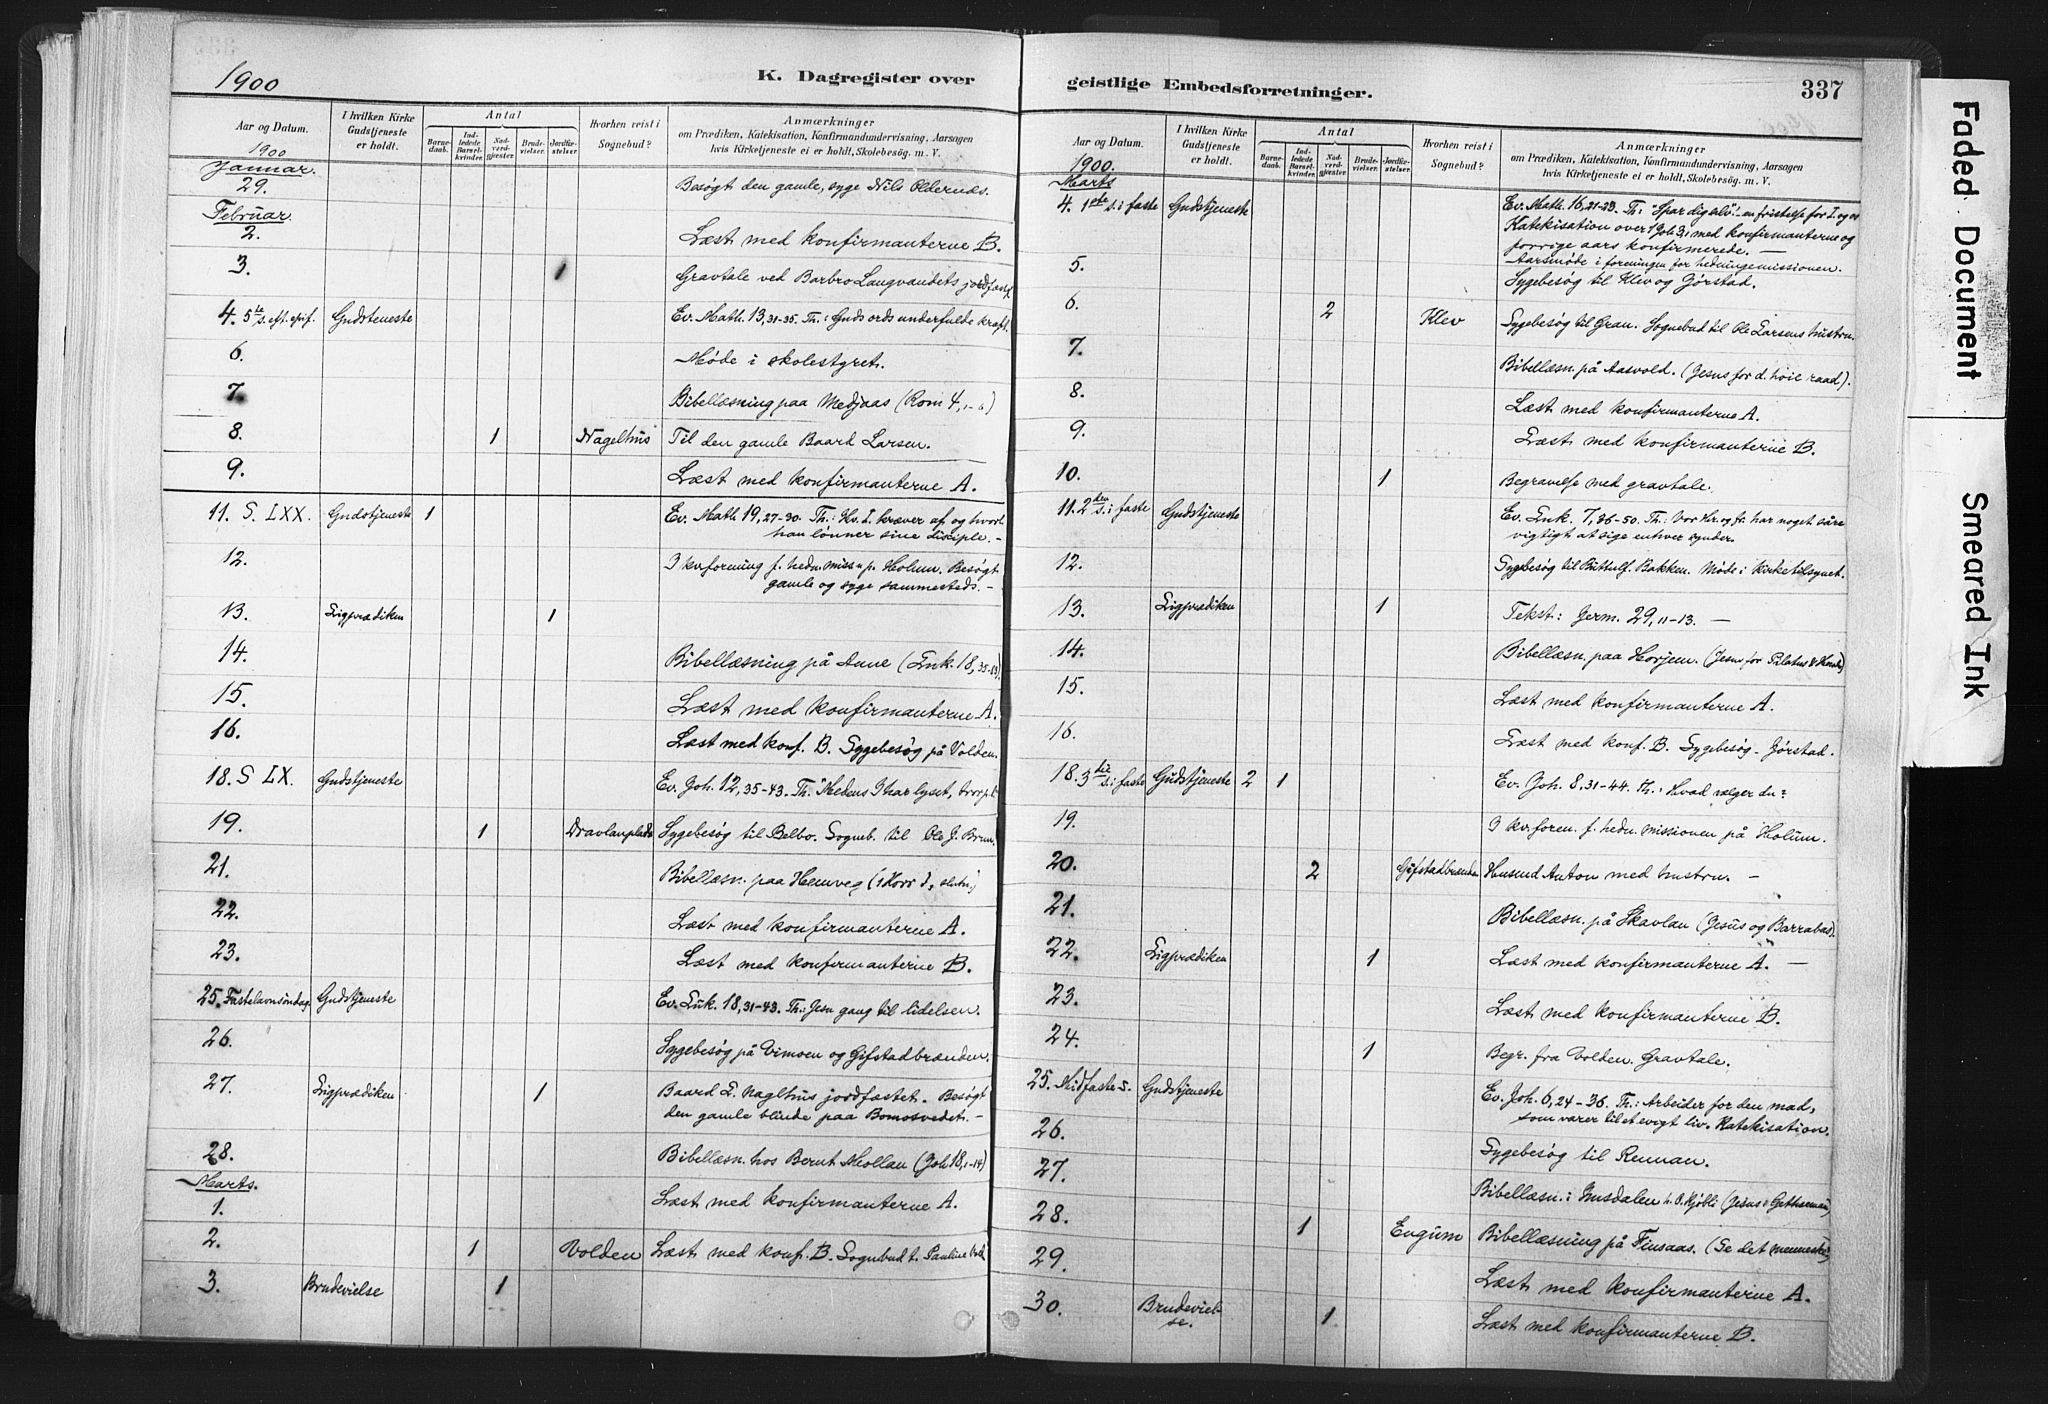 1900
K. Dagregister over
Aar og Datum.
I hvilken Kirke Gudstjeneste er holdt.
Antal
Barnedaab.
Indledede Barselkvinder.
Nadverdgjester
Brudevielser.
Jordfæstelser
Hvorhen reist i Sognebud?
Anmærkninger
om Prædiken, Katekisation, Konfirmandundervisning, Aarsagen
hvis Kirketjeneste ei er holdt, Skolebesøg. m. V.
1900
Januar.
29. Besøgt den gamle, syge Nils Oldernæs.
Februar.
2. Læst med konfirmanterne B.
3. 1 Gravtale ved Barbro Langvandets jordfæst.
4. 5te s. eft. epif. Gudsteneste Ev. Math. 13, 31-35. Th: Guds ords underfulde kraft.
6. Møde i skolestyret.
7. Bibellæsning paa Medjaas (Rom 4,
8. 1 Nagelhus Til den gamle Baard Larsen.
9. Læst med konfirmanterne A.
11. S. LXX. Gudstjeneste 1 Ev. Math 19, 27-30. Th: Hv. J. kræver af og hvorl.
han lønner sine disciple. -
12. I kv.forening f. hedn. miss. p. Holum. Besøgt
gamle og syge sammesteds. -
13. Ligprædiken 1
14. Bibellæsning på Aune (Luk. 18, 35-43).
15. Læst med konfirmanterne A.
16. Læst med konf. B. Sygebesøg på Volden.
18. S LX. Gudstjeneste Ev. Joh. 12, 35-43. Th. "Medens I har lyset, tror p. l"
19. 1 Dravlanplads Sygebesøg til Belbo. Sogneb. til Ole J. Brun.
21. Bibellæsn. paa Hemveg (1 Korr 1, slutn.)
22. Læst med konfirmanterne A.
23. Læst med konfirmanterne B.
25. Fastelavnsøndag Gudstjeneste Ev. Luk. 18, 31-43. Th: Jesu gang til lidelsen.
26. Sygebesøg på Vimoen og Gifstadbrænden.
27. Ligprædiken 1 Baard L. Naglhus jordfæstet. Besøgt
den gamle blinde paa Bomosvedet. -
28. Bibellæsn. hos Bernt Mollan (Joh 18, 1-14)
Marts.
1. Læst med konfirmanterne A.
2. 1 Volden Læst med konf. B. Sognebud t. Pauline Vold
3. Brudevielse 1
geistlige Embedsforretninger.
337
Aar og Datum.
I hvilken Kirke Gudstjeneste er holdt.
Antal
Barnedaab.
Indledede Barselkvinder.
Nadverdgjester
Brudevielser.
Jordfæstelser.
Hvorhen reist i Sognebud?
Anmærkninger
om Prædiken, Katekisation, Konfirmandundervisning, Aarsagen
hvis Kirketjeneste ei er holdt, Skolebesøg. m. V.
1900.
Marts
4. 1ste s. i faste Gudstjeneste Ev. Math. 16, 21-23. Th: "Spar dig selv" - en fristelse for J. og os
Katekisation over 1 Joh 3, med konfirmanterne og
forrige aars konfirmerede. -
5. Aarsmøde i foreningen for hedningemissionen.
Sygebesøg til Klev og Jørstad.
6. 2 Klev Sygebesøg til Gran. Sognebud til Ole Larsens hustru.
7. Bibellæsn. på Aasvold. (Jesus for d. høie raad).
8. Læst med konfirmanterne A.
9. Læst med konfirmanterne B.
10. 1 Begravelse med gravtale.
11. 2den s. i faste Gudstjeneste Ev. Luk. 7, 36-50. Th: Vor Hr. og fr. har noget såre
vigtigt at sige enhver synder.
12. Sygebesøg til Buttulf Bakken. Møde i Kirketilsynet.
13. Ligprædiken 1 Tekst: Jerm. 29, 11-13. -
14. Bibellæsn. paa Horjem. (Jesus for Pilatus & Herodes)
15. Læst med konfirmanterne A.
16. Læst med konf. B. Sygebesøg - Jørstad.
18. 3die s. i faste Gudstjeneste 2 1 Ev. Joh. 8, 31-44. Th: Hvad vælger du?
19. I kv.foren. f. hedn. missionen på Holum.
20. 2 Gifstadbrænden Husmd Anton med hustru. -
21. Bibellæsn. på Skavlan (Jesus og Barrabas).
22. Ligprædiken 1 Læst med konfirmanterne A. -
23. Læst med konfirmanterne B.
24. 1 Begr. fra Volden. Gravtale.
25. Midfaste s. Gudstjeneste Ev. Joh. 6, 24-36. Th: Arbeider for den mad,
som varer til et evigt liv. Katekisation.
26. Sygebesøg til Rennan.
27. Bibellæsn. i Imsdalen h. O. Kjøbli (Jesus i Gethsemane)
28. 1 Engum Bibellæsning på Finsaas. (Se det menneske)
29. Læst med konfirmanterne A.
30. Brudeviel-
se. 1 Læst med konfirmanterne B.
Faded Document
Smeared Ink